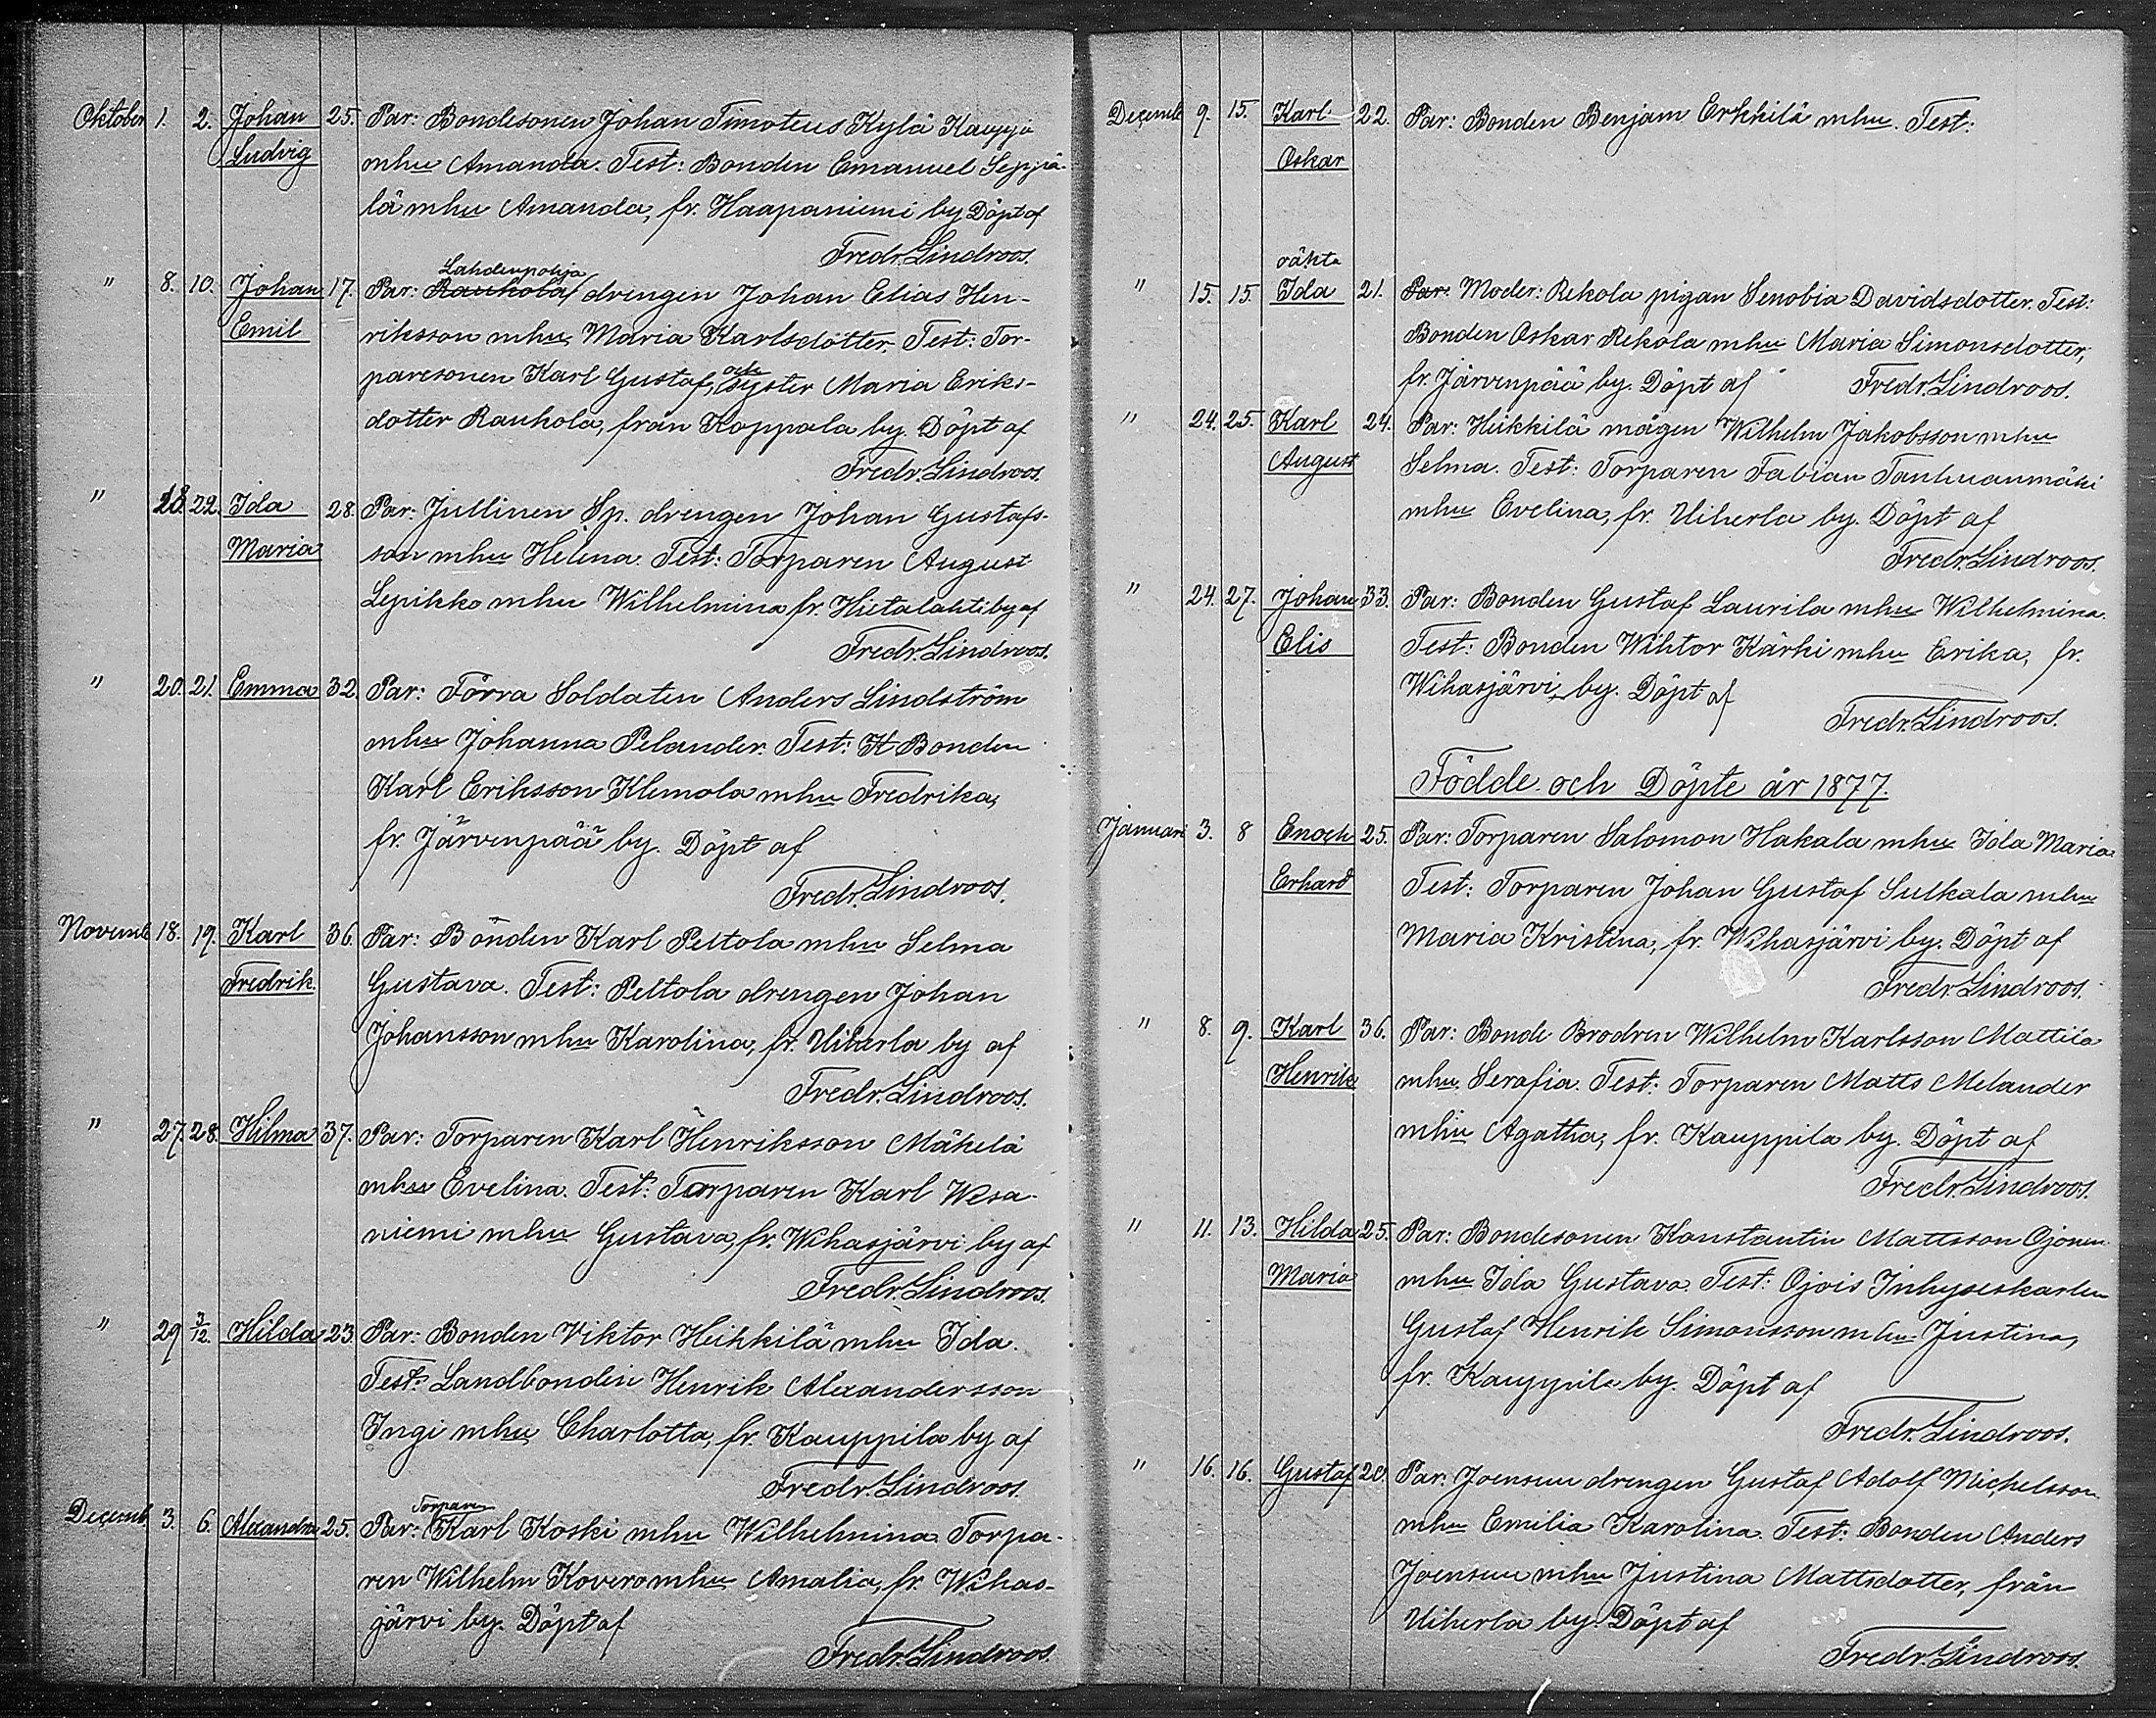 Oktober 1. 2. Johan 25. Par: Bondesonen Johan Timoteus Kylä Kauppi
Ludvig mhu Amanda. Test: Bonden Emanuel Seppä-
lä mhu Amanda, fr. Haapaniemi by Döpt af
Fredr. Lindroos.
Lahdenpohja
" 8. 10. Johan 17. Par: Rauhola drengen Johan Elias Hen-
Emil riksson mhu Maria Karlsdotter. Test: Tor-
paresonen Karl Gustaf, och syster Maria Eriks-
dotter Rauhola, från Koppala by. Döpt af
Fredr. Lindroos.
" 18. 22. Ida 28. Par: Jullinen Sp. drengen Johan Gustafs-
Maria son mhu Helena. Test: Torparen August
Lepikko mhu Wilhelmina fr. Hietalahti by af
Fredr. Lindroos.
" 20. 21. Emma 32. Par: Förra Soldaten Anders Lindström
mhu Johanna Pelander. Test: K Bonden
Karl Eriksson Klemola mhu Fredrika,
fr. Järvenpää by. Döpt af
Fredr. Lindroos.
Novemb 18. 19. Karl 36. Par: Bonden Karl Peltola mhu Selma
Fredrik. Gustava. Test: Peltola drengen Johan
Johansson mhu Karolina, fr. Uiherla by af
Fredr. Lindroos.
" 27. 28. Hilma 37. Par: Torparen Karl Henriksson Mäkelä
mhu Evelina. Test: Torparen Karl Wesa-
niemi mhu Gustava, fr. Wihasjärvi by af
Fredr. Lindroos.
" 29 3/12. Hilda 23. Par: Bonden Viktor Heikkilä mhu Ida.
Test: Landbonden Henrik Alexandersson
Ingi mhu Charlotta, fr. Kauppila by af
Fredr. Lindroos.
Torparen
Decemb. 3. 6. Alexandra 25. Par: Karl Koski mhu Wilhelmina Torpa-
ren Wilhelm Kovero mhu Amalia, fr. Wihas-
järvi by. Döpt af
Fredr. Lindroos.
Decemb 9. 15. Karl 22. Par: Bonden Benjam Erkkilä mhu. Test:
Oskar
oäkta
" 15. 15. Ida 21. Par: Moder: Rekola pigan Senobia Davidsdotter. Test:
Bonden Oskar Rekola mhu Maria Simonsdotter,
fr. Järvenpää by. Döpt af Fredr. Lindroos.
" 24. 25. Karl 24. Par: Heikkilä mågen Wilhelm Jakobsson mhu
August Selma. Test: Torparen Fabian Tanhuanmäki
mhu Evelina, fr. Uiherla by. Döpt af
Fredr. Lindroos.
" 24. 27. Johan 33. Par: Bonden Gustaf Laurila mhu Wilhelmina.
Elis Test: Bonden Wihtor Kärki mhu Erika, fr.
Wihasjärvi by. Döpt af
Fredr. Lindroos.
Födde och Döpte år 1877.
Januari 3. 8 Enoch 25. Par: Torparen Salomon Hakala mhu Ida Maria
Erhard Test: Torparen Johan Gustaf Sulkala mhu
Maria Kristina, fr. Wihasjärvi by. Döpt af
Fredr. Lindroos.
" 8. 9. Karl 36. Par: Bonde Brodren Wilhelm Karlsson Mattila
Henrik mhu Serafia. Test: Torparen Matts Melander
mhu Agatha, fr. Kauppila by. Döpt af
Fredr. Lindroos.
" 11. 13. Hilda 25. Par: Bondesonen Konstantin Mattsson Ojonen
Maria mhu Ida Gustava. Test: Ojois Inhyseskarlen
Gustaf Henrik Simonsson mhu Justina,
fr. Kauppila by. Döpt af
Fredr. Lindroos.
" 16. 16. Gustaf 20. Par: Joensuu drengen Gustaf Adolf Michelsson
mhu Emilia Karolina. Test: Bonden Anders
Joensuu mhu Justina Mattsdotter, från
Uiherla by. Döpt af
Fredr. Lindroos.